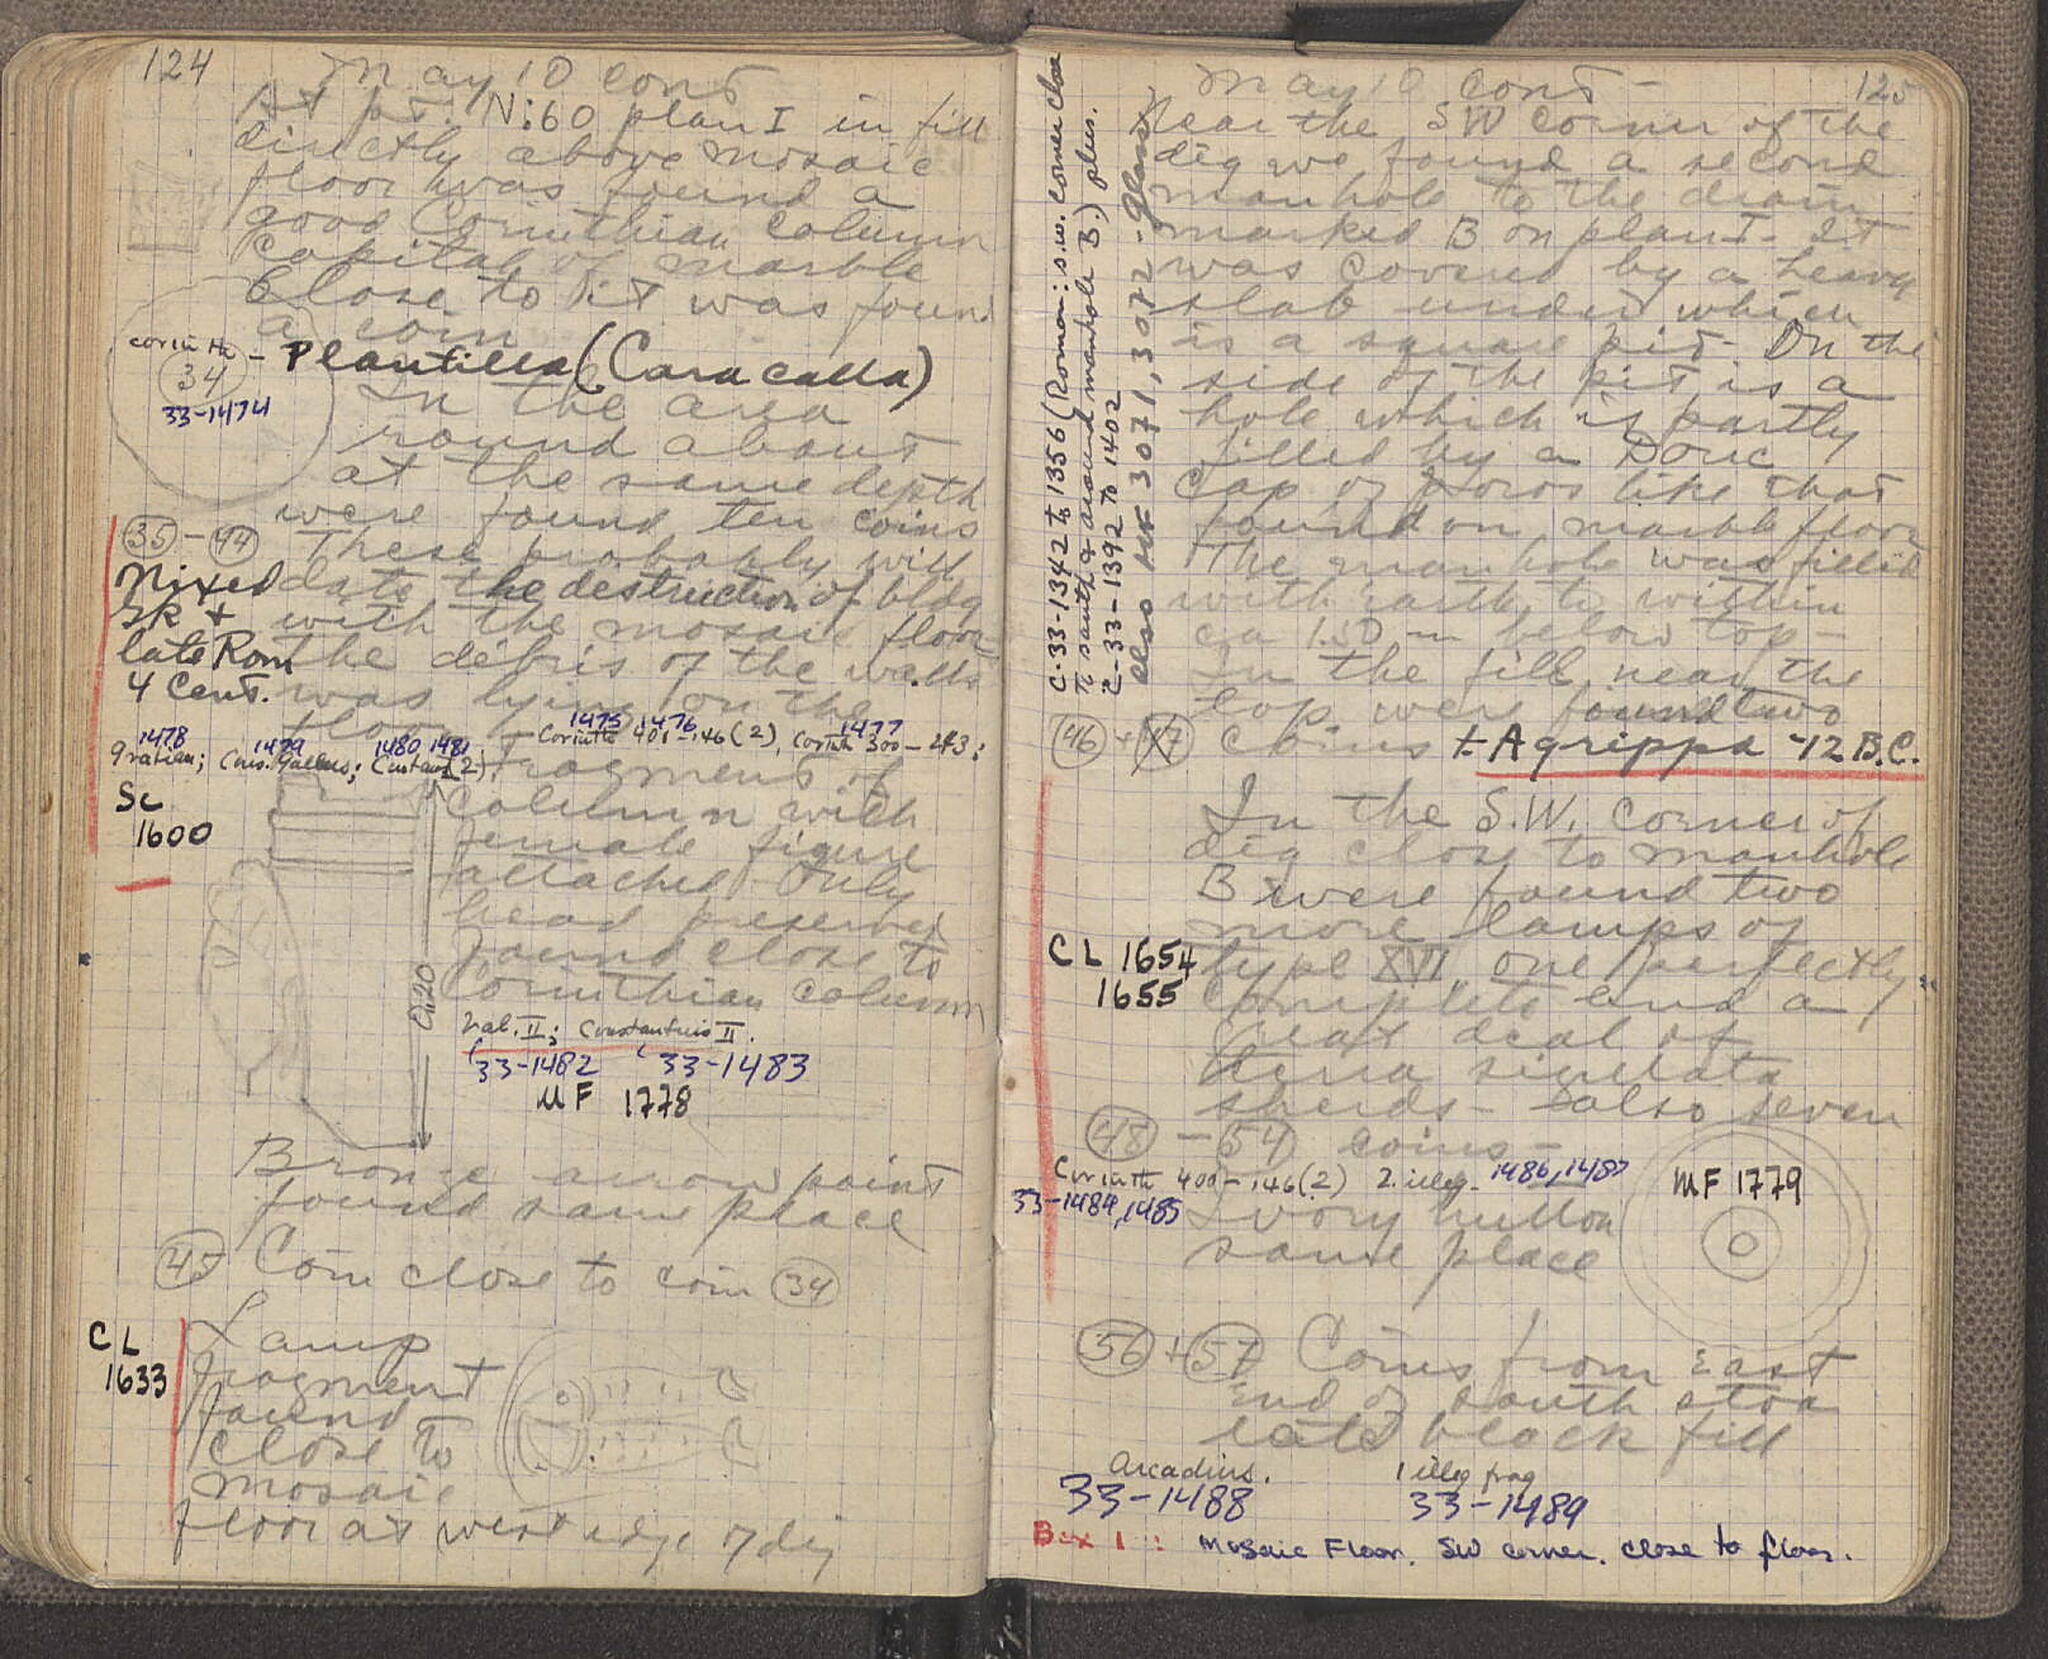 124
May 10 cont
At pt. N:60 plan I in fill
directly above mosaic
floor was found a
good Corinthian column
capital of marble
Close to it was found
a coin
corinth - Plantilla (Caracalla)
34
33-1474
In the area
round about
at the same depth
were found ten coins
35 - 44 These probably will
Mixed date the destruction of bldg
GR + with the mosaic floor
late Rom the débris of the walls
4 Cent. was lying on the
floor
1475, 1476 1477
Corinth 401-146 (2), Corinth 300-243;
1478 1479 1480 1481
Gratian; Cons. Gallus; Constans (2).
Sc
1600
Fragment of
column with
female figure
attached Only
head preserved
found close to
Corinthian column
0.20
Val. II; Constantius II.
33-1482 33-1483
MF 1778
Bronze arrow point
found same place
45 Coin close to coin 34
CL
1633
Lamp
fragment
found
close to
mosaic
floor at west edge of dig
125
May 10 cont -
C-33-1342 to 1356 (Roman: s.w. corner close
To south & around manhole B.) plus.
C-33-1392 to 1402
also MF 3071, 3072 - glass
Near the SW corner of the
dig we found a second
manhole to the drain
marked B on plan I. It
was covered by a heavy
slab under which
is a square pit. On the
side of the pit is a
hole which is partly
filled by a Doric
cap of poros like that
found on marble floor
The manhole was filled
with earth to within
ca 1.50 m below top -
In the fill near the
top were found two
46 + 47 coins 1-Agrippa -12 B.C.
In the S.W. corner of
dig close to manhole
B were found two
more lamps of
CL 1654 type XVI, one perfectly
1655 complete and a
great deal of
terra sigulata
sherds - also seven
48 - 54 coins -
Corinth 400-146 (2) 2 illeg. 1486, 1487
33-1484, 1485
MF 1779
Ivory button
same place
56 + 57 Coins from East
End of South stoa
late black fill
Arcadius. 1 illeg frag
33-1488 33-1489
Box 1: Mosaic Floor. SW corner. close to floor.